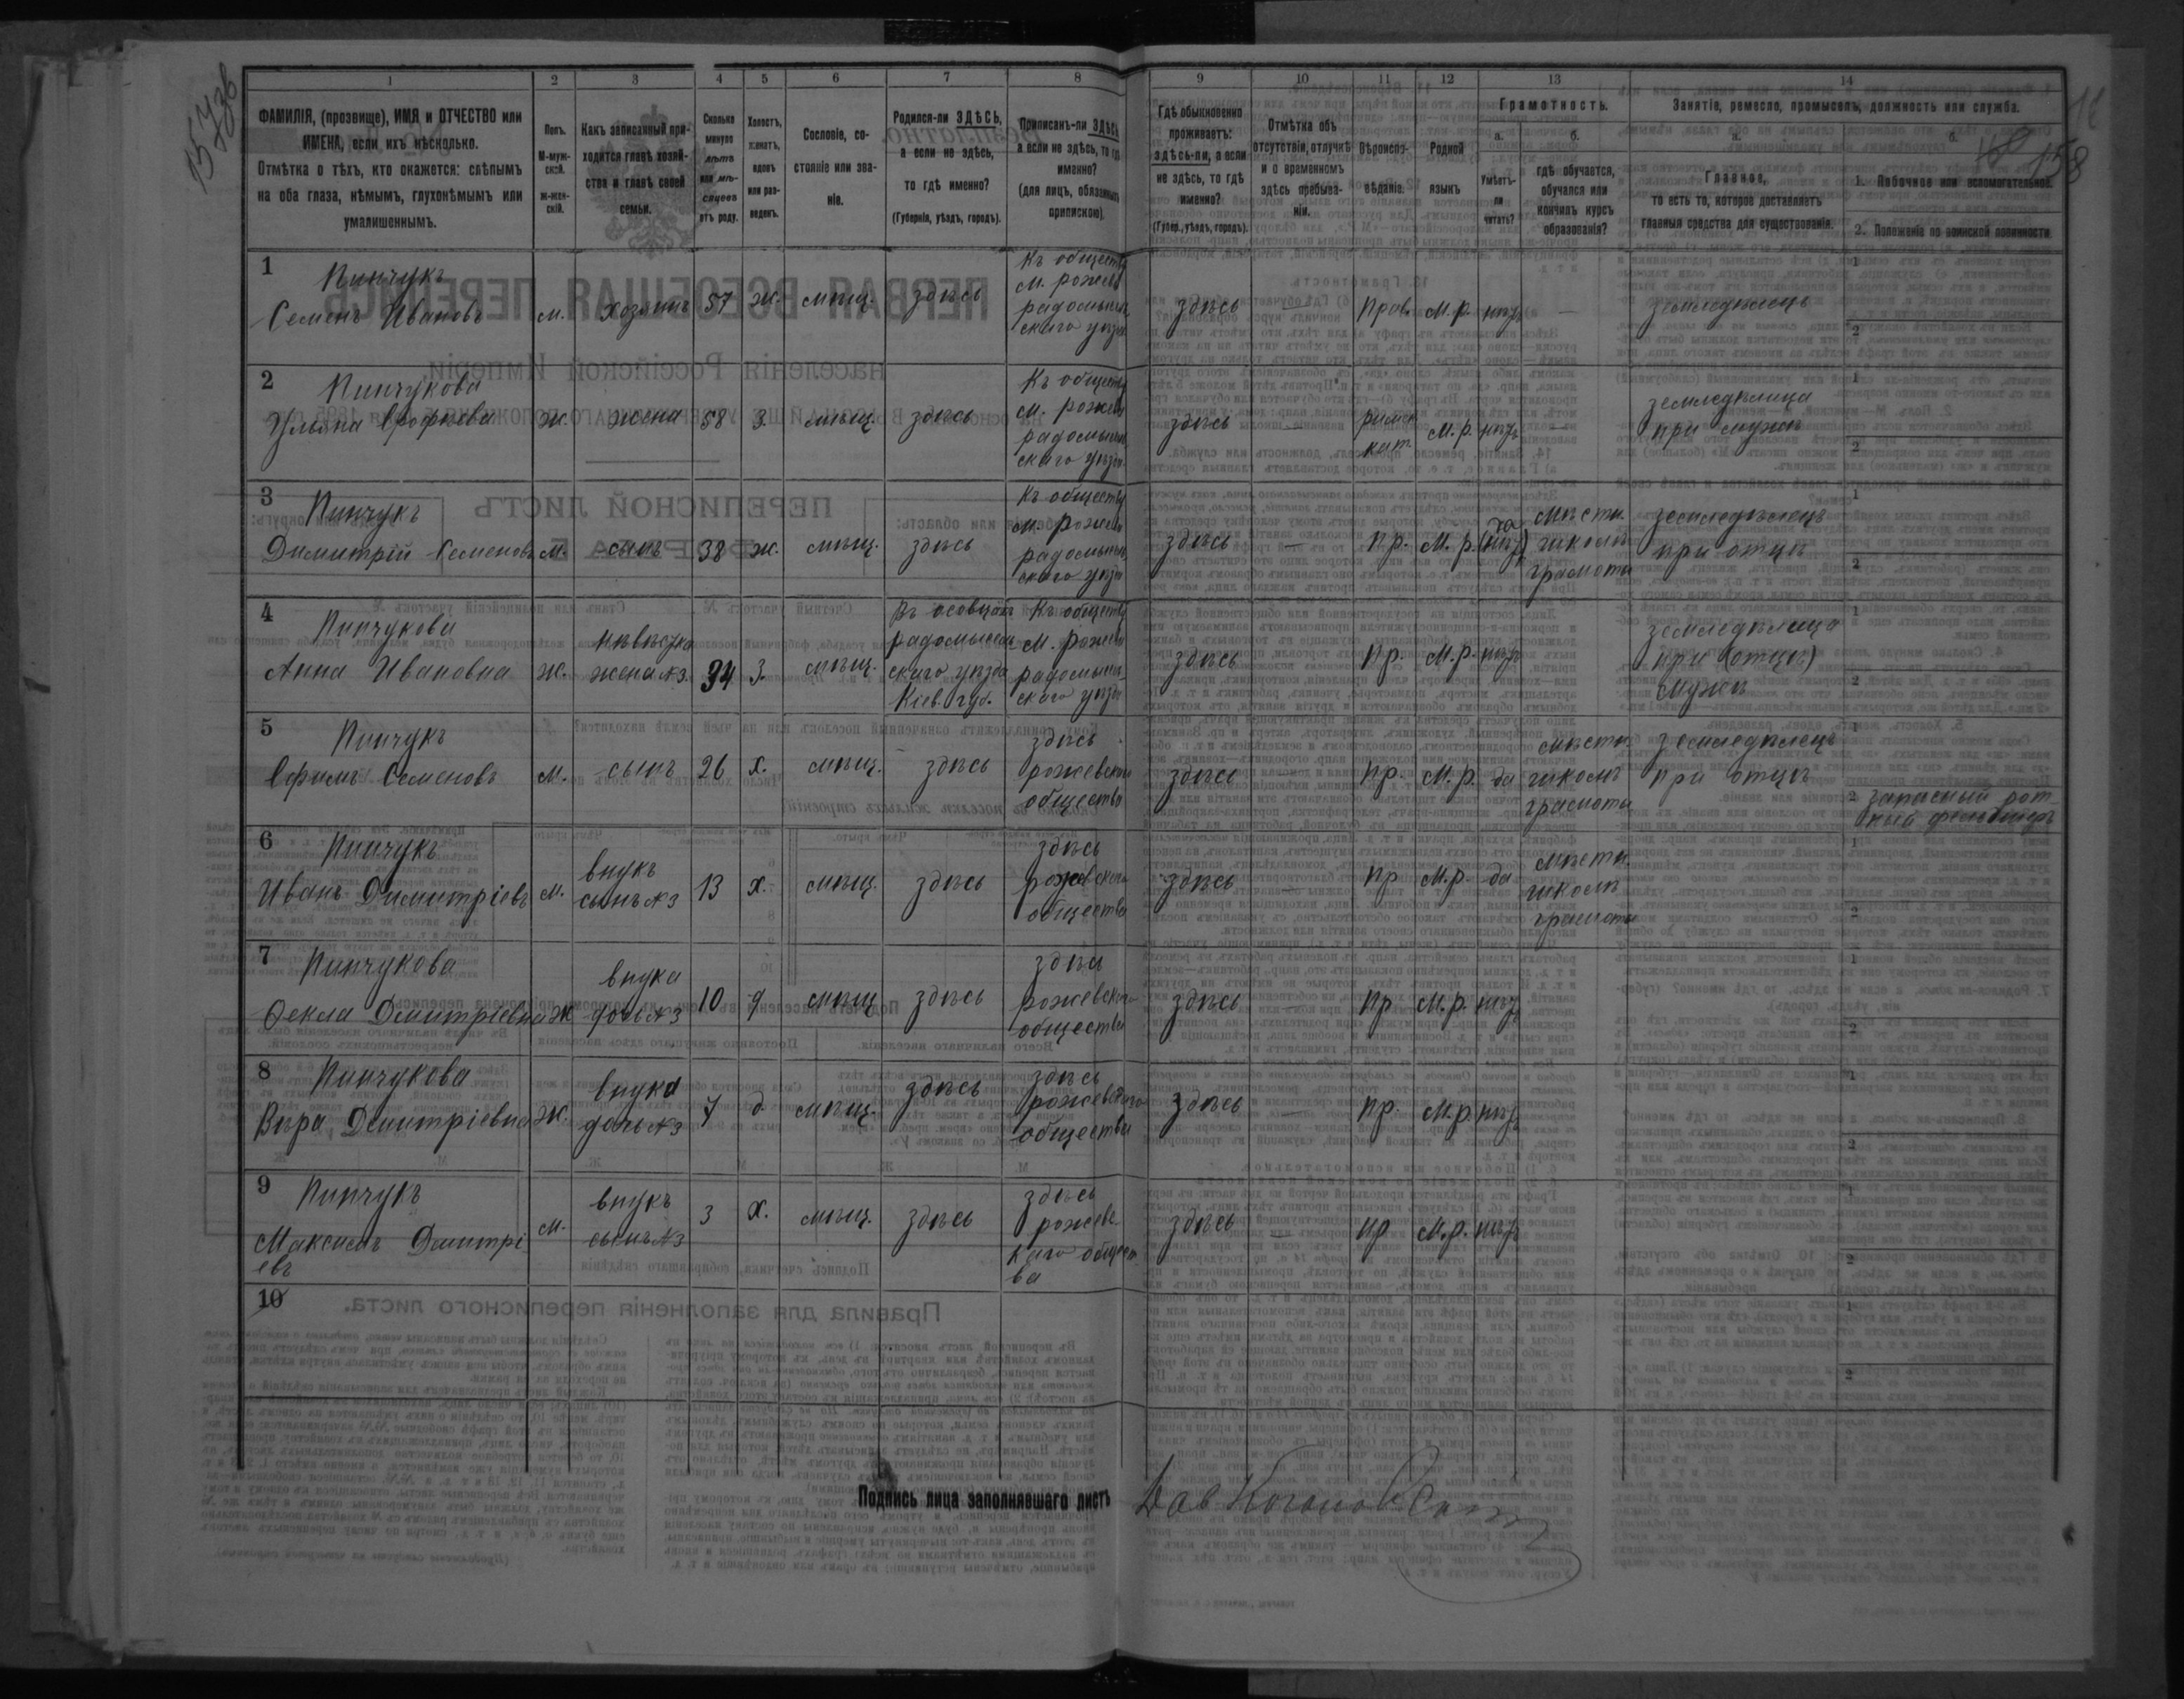 157 зв
18
158
1
2
3
4
5
6
7
8
9
10
11
12
13
14
ФАМИЛІЯ, (прозвище), ИМЯ и ОТЧЕСТВО или
ИМЕНА, если ихъ нѣсколько.
Отмѣтка о тѣхъ, кто окажется: слѣпымъ
на оба глаза, нѣмымъ, глухонѣмымъ или
умалишеннымъ.
Полъ.
М-муж-
ской.
Ж-жен-
скій.
Какъ записанный при-
ходится главѣ хозяй-
ства и главѣ своей
семьи.
Сколько
минуло
лѣтъ
или мѣ-
сяцевъ
отъ роду.
Холостъ,
женатъ,
вдовъ
или раз-
веденъ.
Сословіе, со-
стояніе или зва-
ніе.
Родился-ли ЗДѢСЬ,
а если не здѣсь,
то гдѣ именно?
(Губернія, уѣздъ, городъ).
Приписанъ-ли ЗДѢСЬ,
а если не здѣсь, то гдѣ
именно?
(для лицъ, обязанныхъ
припискою).
Гдѣ обыкновенно
проживаетъ:
здѣсь-ли, а если
не здѣсь, то гдѣ
именно?
(Губер., уѣздъ, городъ).
Отмѣтка объ
отсутствіи, отлучкѣ
и о временномъ
здѣсь пребыва-
ніи.
Вѣроиспо-
вѣданіе.
Родной
языкъ
Грамотность.
а.
Умѣетъ-
ли
читать?
б.
гдѣ обучается,
обучался или
кончилъ курсъ
образованія?
Занятіе, ремесло, промыселъ, должность или служба.
а.
Главное,
то есть то, которое доставляетъ
главныя средства для существованія.
б.
1. Побочное или вспомогательное.
2. Положеніе по воинской повинности.
1
Пинчукъ
Семенъ Ивановъ
м.
хозяинъ
57
ж.
мѣщ.
здѣсь
Къ обществу
м. рожева
радомысль
скаго уѣзда
здѣсь
Прав.
м. р.
нѣтъ
—
земледѣлецъ
1
2
2
Пинчукова
Ульяна Ерофѣева
ж.
жена
58
з.
мѣщ.
здѣсь
Къ обществу
м. рожева
радомысль
скаго уѣзда
здѣсь
—
римск
кат.
м. р.
нѣтъ
—
земледѣлица
при мужѣ
1
2
3
Пинчукъ
Димитрій Семеновъ
м.
сынъ
38
ж.
мѣщ.
здѣсь
Къ обществу
м. рожева
радомысль
скаго уѣзда
здѣсь
—
пр.
м. р.
да
(нѣтъ)
мѣстн.
школѣ
грамоты
земледѣлецъ
при отцѣ
1
2
4
Пинчукова
Анна Ивановна
ж.
невѣстка
жена №3
34
з.
мѣщ.
радомысль
скаго уѣзда
Кіев. губ.
Къ обществу
м. рожева
радомысль
скаго уѣзда
здѣсь
пр.
м. р.
нѣтъ
земледѣлица
при (отцѣ)
мужѣ
1
2
5
Пинчукъ
Ефимъ Семеновъ
м.
сынъ
26
х.
мѣщ.
здѣсь
здѣсь
рожевскаго
общества
здѣсь
—
пр.
м. р.
да
мѣстн.
школѣ
грамоты
земледѣлецъ
при отцѣ
1
2
запасный рот-
ный фельдшеръ
6
Пинчукъ
Иванъ Димитріевъ
м.
внукъ
сынъ №3
13
х.
мѣщ.
здѣсь
здѣсь
рожевскаго
общества
здѣсь
—
пр
м. р.
да
мѣстн.
школѣ
грамоты
1
2
7
Пинчукова
Ѳекла Дмитріевна
ж
внука
дочь №3
10
д
мѣщ
здѣсь
здѣсь
рожевскаго
общества
здѣсь
—
пр
м. р.
нѣтъ
1
2
8
Пинчукова
Вѣра Дмитріевна
ж.
внука
дочь №3
7
д
мѣщ.
здѣсь
здѣсь
рожевскаго
общества
здѣсь
—
пр.
м. р.
нѣтъ
1
2
9
Пинчукъ
Максимъ Дмитрі
евъ
м.
внукъ
сынъ №3
3
х.
мѣщ.
здѣсь
здѣсь
рожевс
каго общест
ва
здѣсь
—
пр
м. р.
нѣтъ
1
2
10
1
2
Подпись лица заполнявшаго листъ